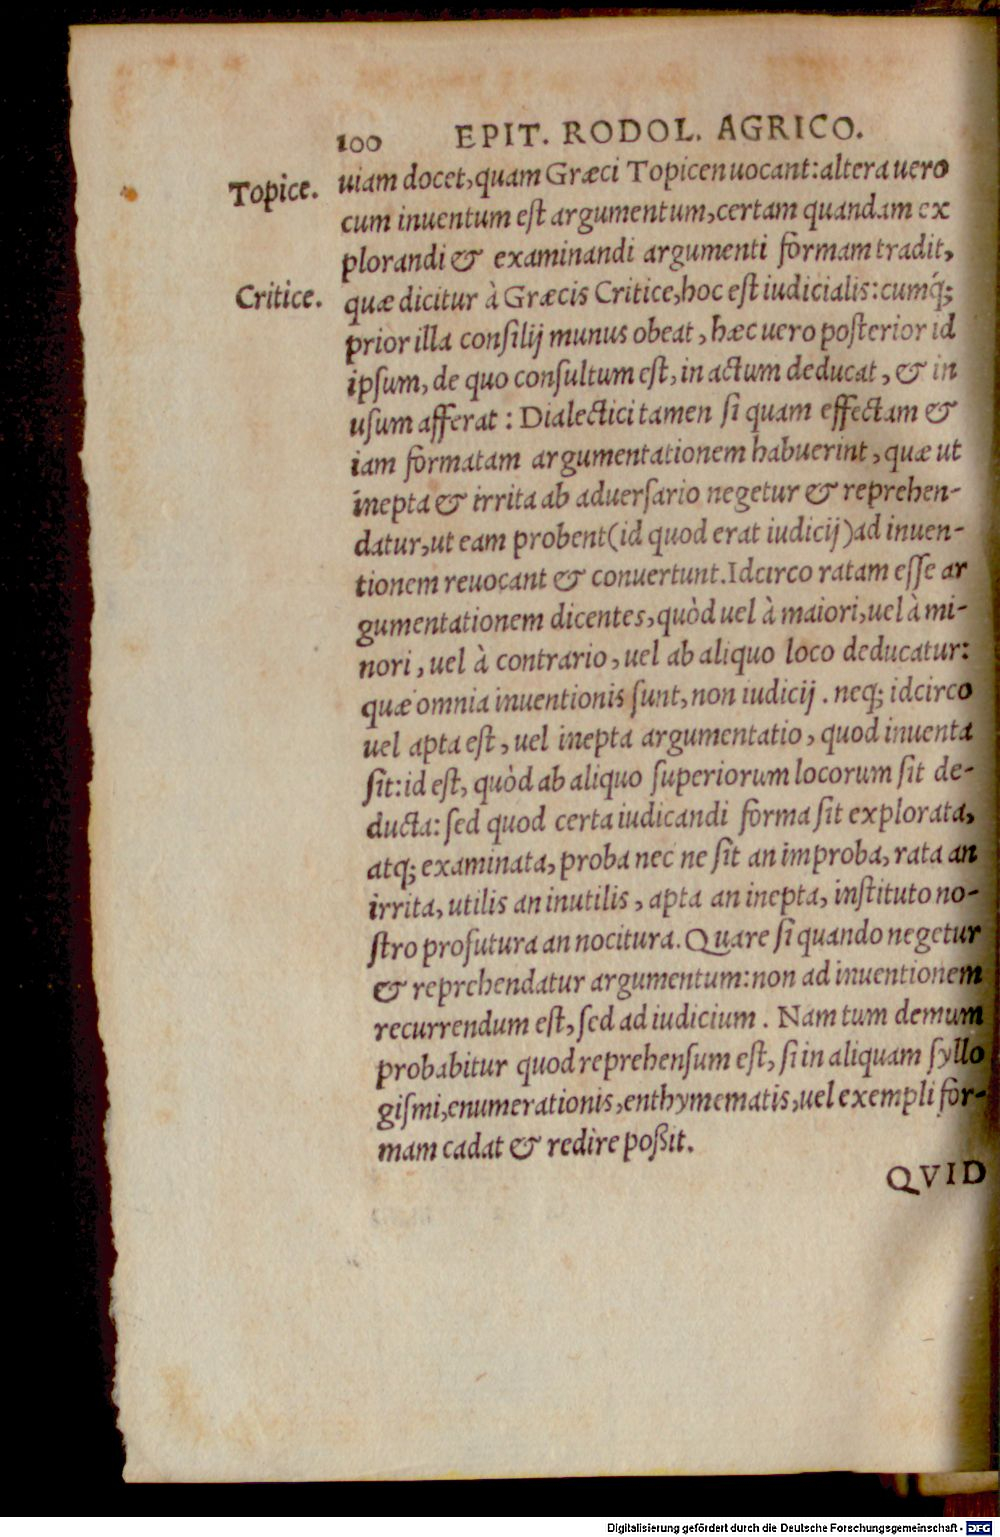 100 EPIT. RODOL. AGRICO.
Topice. uiam docet, quam Græci Topicen uocant: altera uero
cum inuentum est argumentum, certam quandam ex
plorandi & examinandi argumenti formam tradit,
Critice. quæ dicitur à Græcis Critice, hoc est iudicialis: cumq́;
prior illa consilij munus obeat, hæc uero posterior id
ipsum, de quo consultum est, in actum deducat, & in
usum afferat: Dialectici tamen si quam effectam &
iam formatam argumentationem habuerint, quæ ut
inepta & irrita ab aduersario negetur & reprehen-
datur, ut eam probent (id quod erat iudicij) ad inuen-
tionem reuocant & conuertunt. Idcirco ratam esse ar
gumentationem dicentes, quòd uel à maiori, uel à mi-
nori, uel à contrario, uel ab aliquo loco deducatur:
quæ omnia inuentionis sunt, non iudicij. neq; idcirco
uel apta est, uel inepta argumentatio, quod inuenta
sit: id est, quòd ab aliquo superiorum locorum sit de-
ducta: sed quod certa iudicandi forma sit explorata,
atq; examinata, proba nec ne sit an improba, rata an
irrita, utilis an inutilis, apta an inepta, instituto no-
stro profutura an nocitura. Quare si quando negetur
& reprehendatur argumentum: non ad inuentionem
recurrendum est, sed ad iudicium. Nam tum demum
probabitur quod reprehensum est, si in aliquam syllo
gismi, enumerationis, enthymematis, uel exempli for-
mam cadat & redire poßit.
QVID
Digitalisierung gefördert durch die Deutsche Forschungsgemeinschaft - DFG